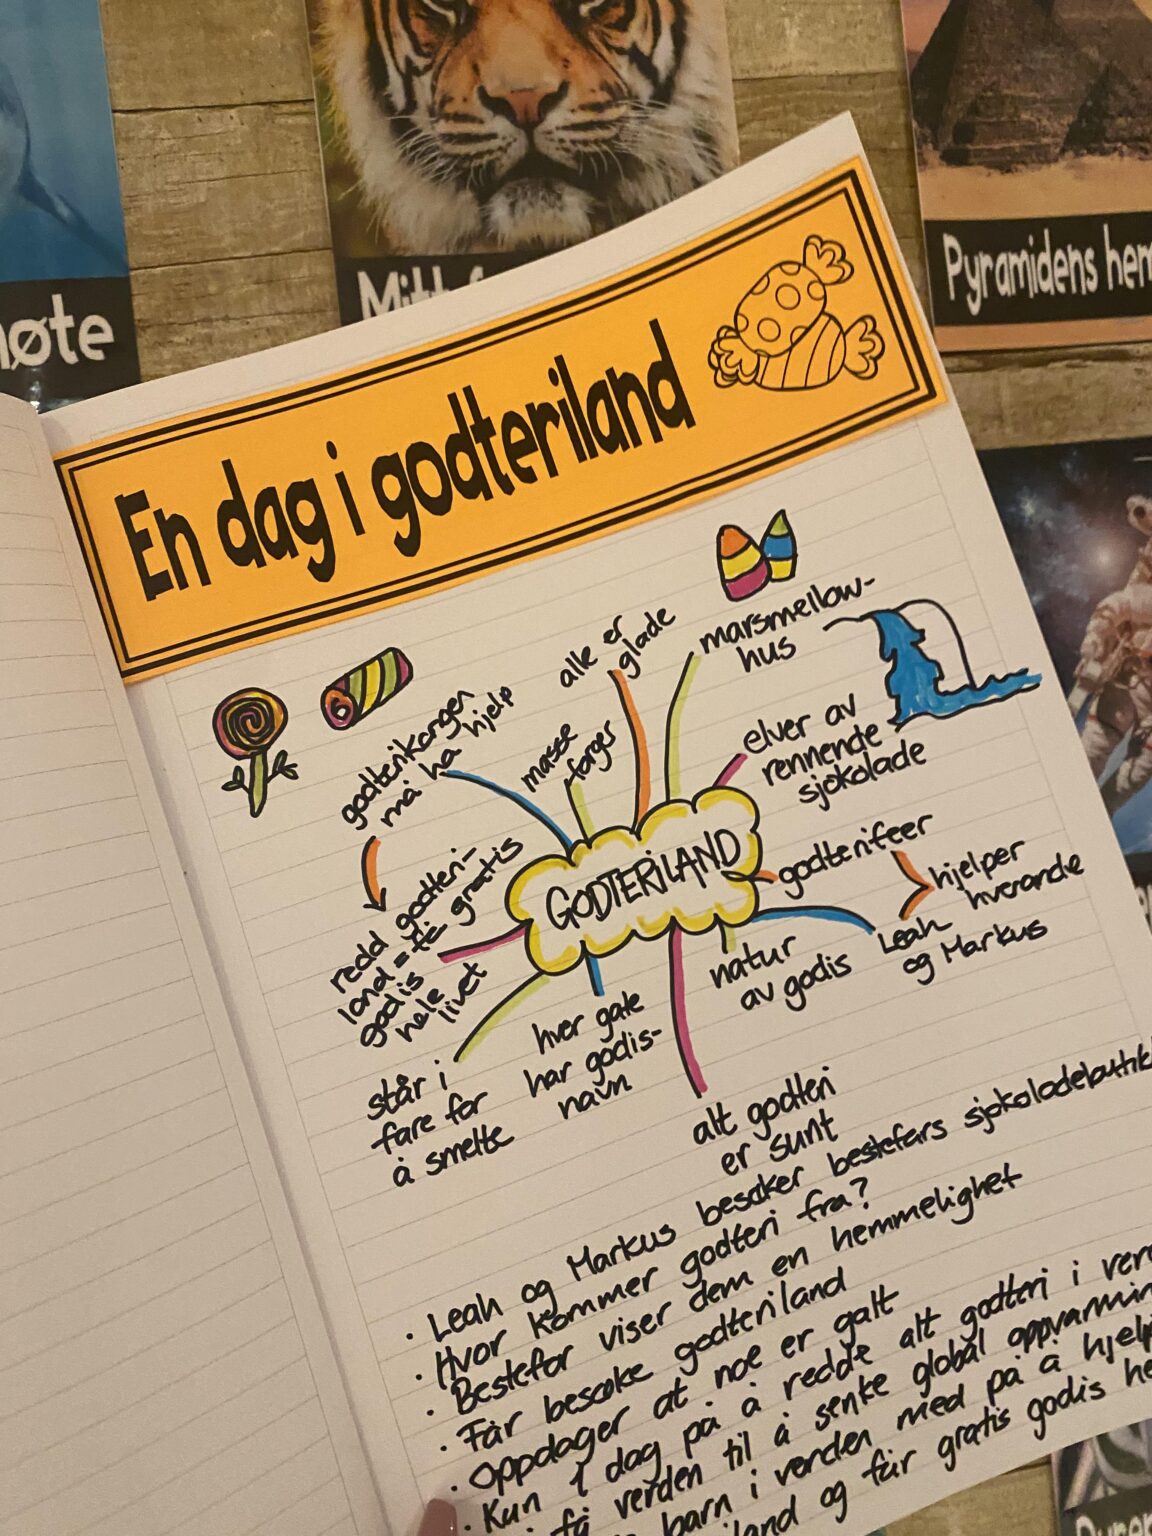 møte
Mitt
Pyramidens hem
En dag i godteriland
godterikongen
må ha hjelp
masse
farger
alle er
glade
marsmellow-
hus
elver av
rennende
sjokolade
godterifeer
hjelper
hverande
Leah
og Markus
natur
av godis
GODTERILAND
redd godteri-
land = få gratis
godis
hele
livet
står i
fare for
å smelte
hver gate
har godis-
navn
alt godteri
er sunt
• Leah og Markus besøker bestefars sjokoladebutikk
• Hvor kommer godteri fra?
• Bestefor viser dem en hemmelighet
• Får besøke godteriland
• Oppdager at noe er galt
• Kun 1 dag på å redde alt godteri i ver
få verden til å senke global oppvarmin
barn i verden med på å hjelp
land og får gratis godis he